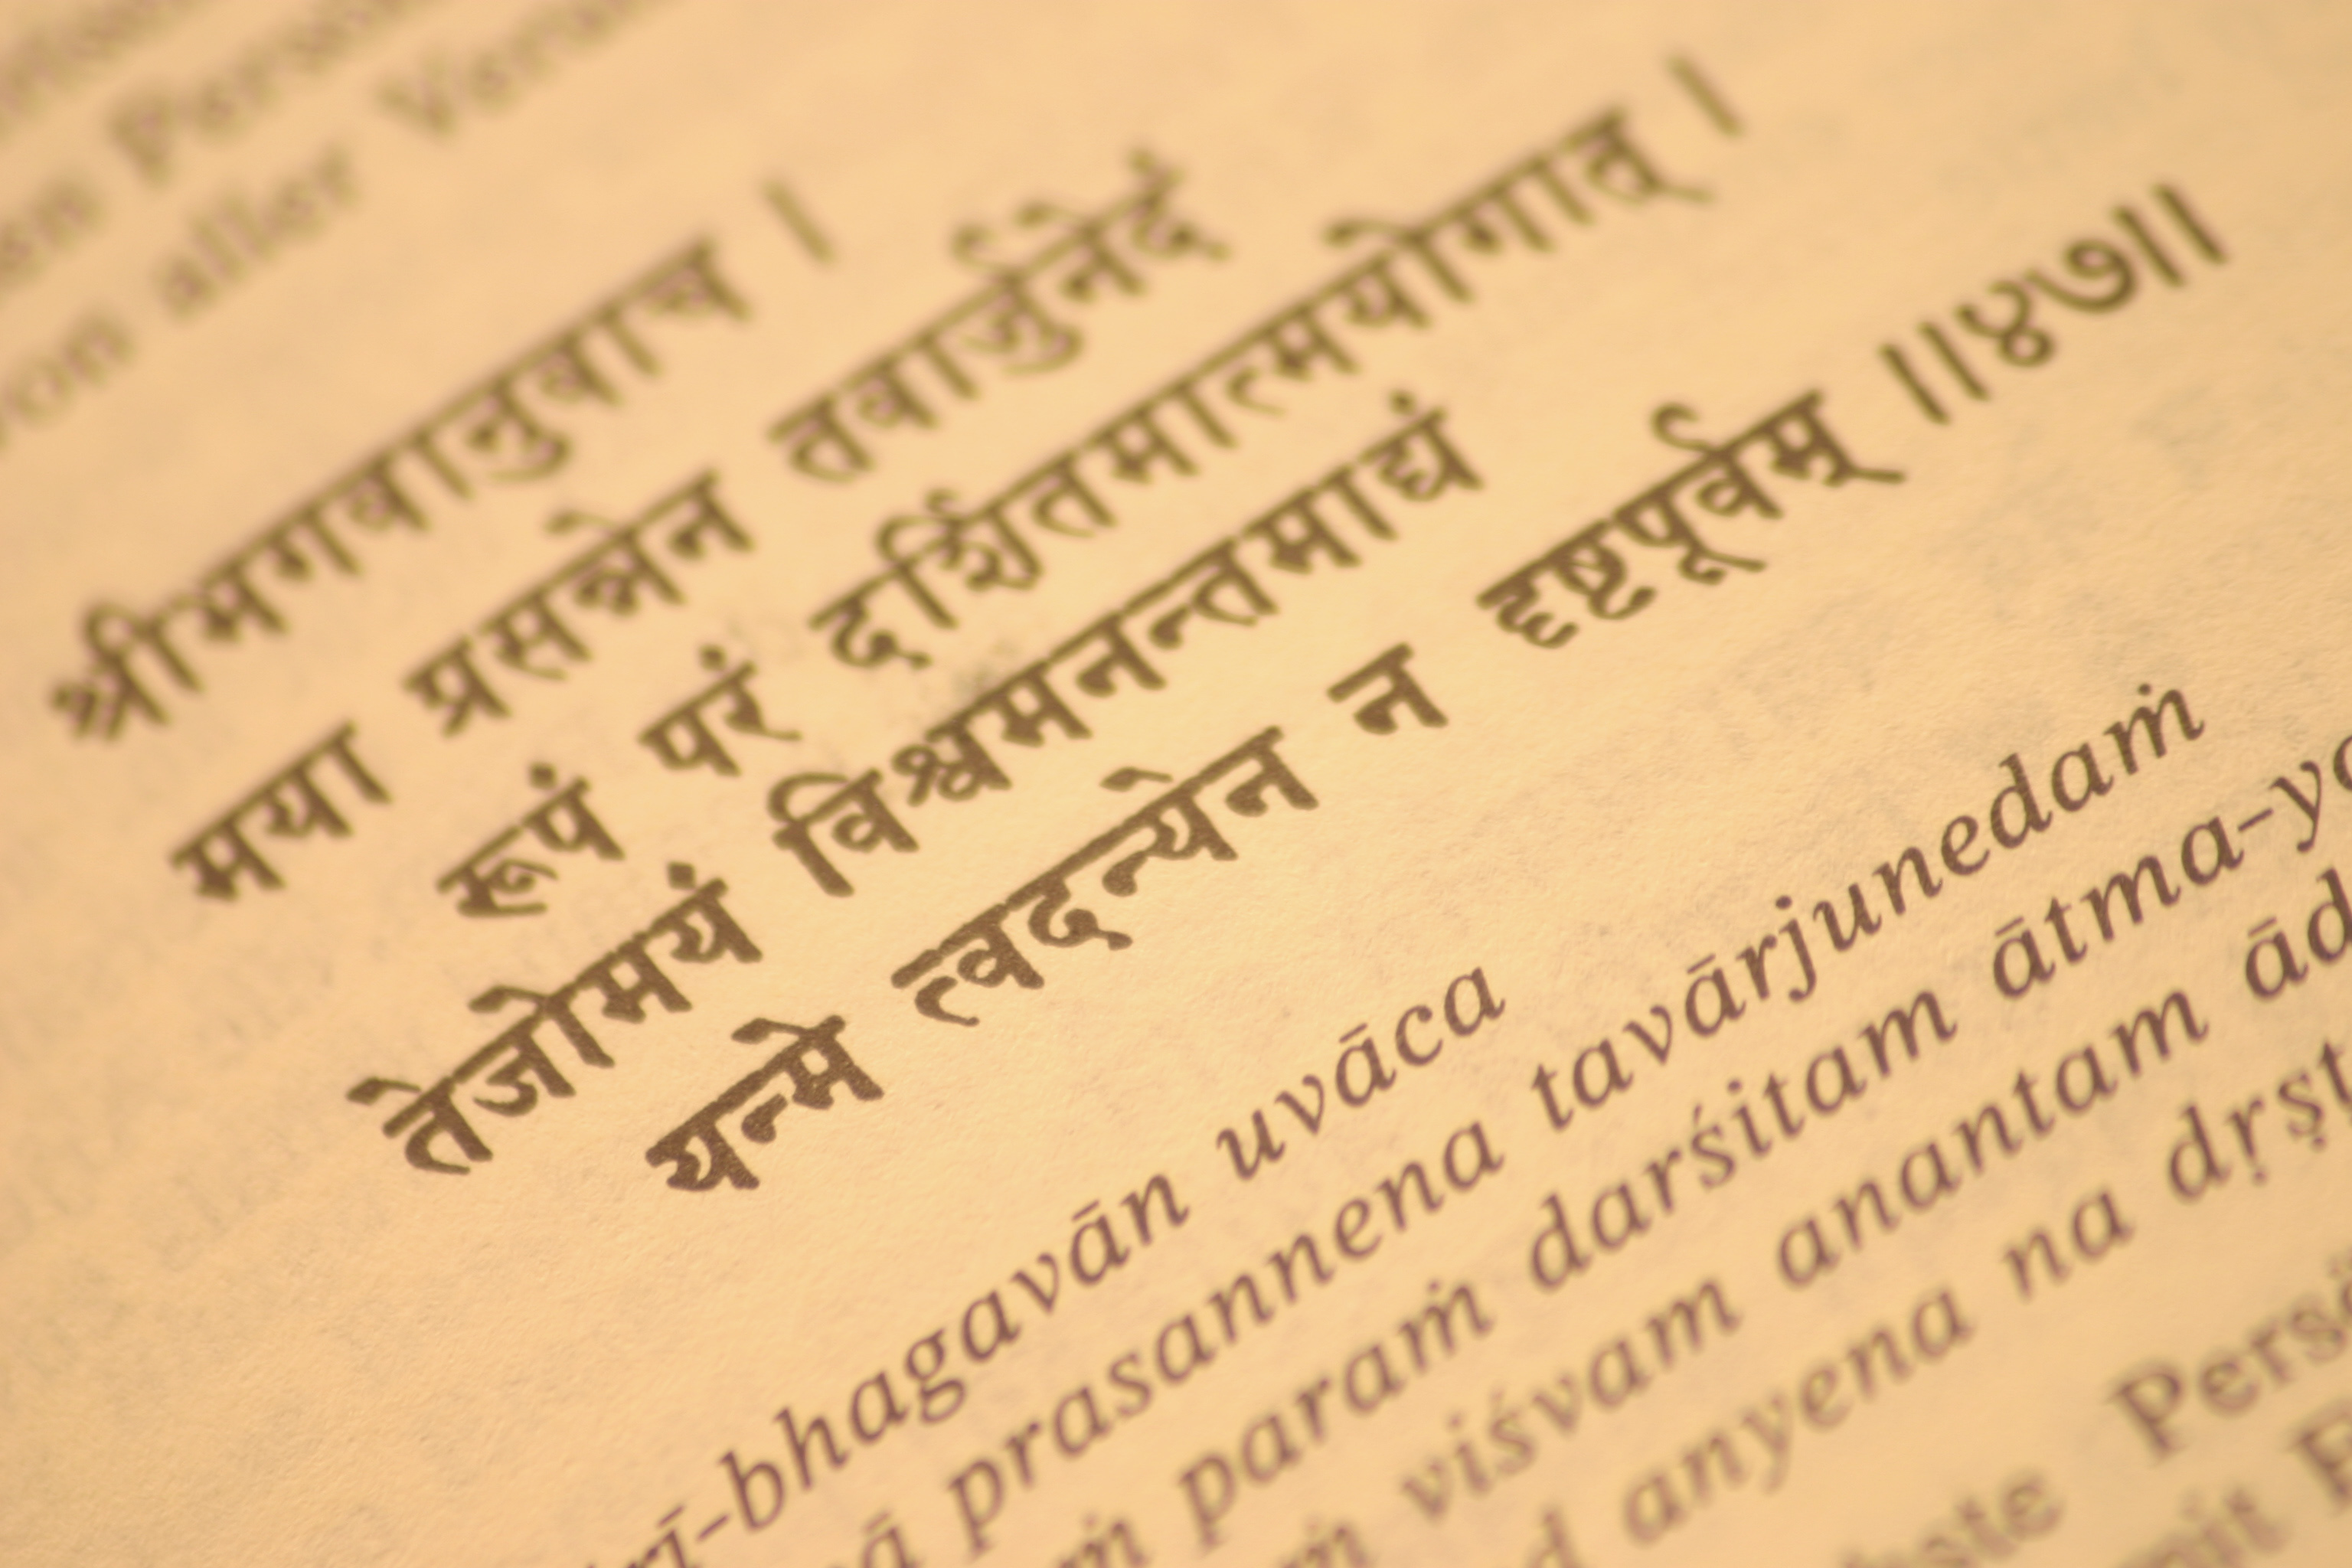 Person
von aller
श्रीभगवानुवाच ।
मया प्रसन्नेन तवार्जुनेदं
रूपं परं दर्शितमात्मयोगात् ।
तेजोमयं विश्वमनन्तमाद्यं
यन्मे त्वदन्येन न दृष्टपूर्वम् ॥४७॥
rī-bhagavān uvāca
prasannena tavārjunedaṁ
paraṁ darśitam ātma-yo
viśvam anantam ād
anyena na dṛṣṭ
Persö
mit